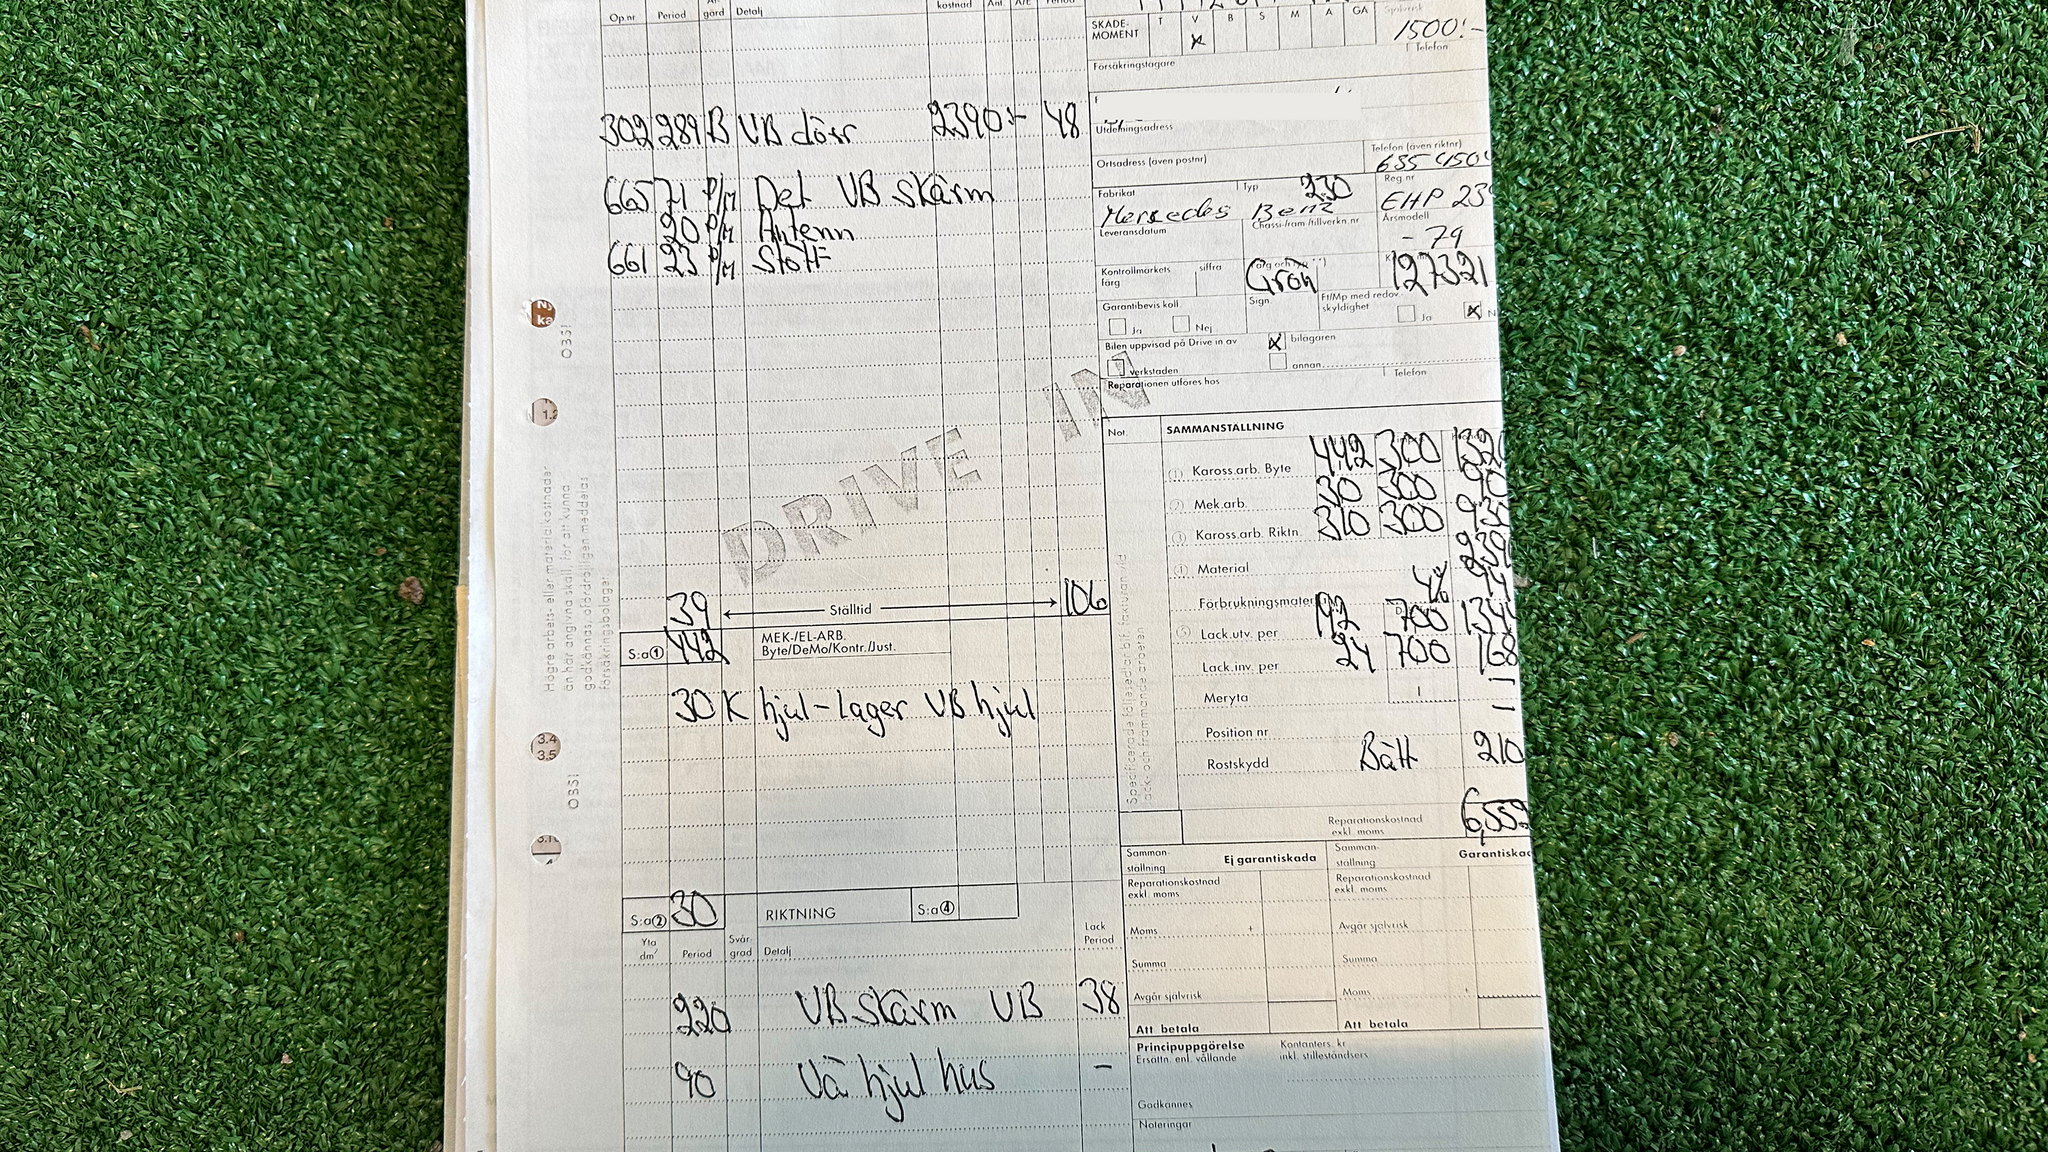 Op.nr Period gärd Detalj kostnad Ant. A/E Period
302 289 B VB dörr 2390:- 48
665 71 P/M Del VB skärm
20 P/M Antenn
661 23 P/M Stötf
DRIVE IN
39 Ställtid 106
S:a① 442 MEK-/EL-ARB.
Byte/DeMo/Kontr./Just.
30 K hjul-lager VB hjul
S:a② 30 RIKTNING S:a④
Yta dm² Period Svår-grad Detalj Lack Period
220 VB skärm VB 38
90 Vä hjul hus -
Högre arbets- eller materialkostnader
än här angivna skall, för att kunna
godkännas, ofördröjligen meddelas
försäkringsbolaget
0331
0331
Ny
ka
1.2
3.4
3.5
SKADE-
MOMENT T V B S M A GA Självrisk
x 1500:-
Telefon
Försäkringstagare
Utdelningsadress
Ortsadress (även postnr) Telefon (även riktnr)
Fabrikat Typ 230 Reg.nr
Mercedes Benz EHP 23
Leveransdatum Chassi-/ram-/tillverkn.nr Årsmodell
- 79
Kontrollmärkets färg siffra Grön 127321
Garantibevis koll Sign. Ft/Mp med redov.
skyldighet Ja x N
Ja Nej
Bilen uppvisad på Drive in av x bilägaren
verkstaden annan
Reparationen utföres hos Telefon
Not. SAMMANSTÄLLNING
① Kaross.arb. Byte 442 300 132
② Mek.arb. 30 300 90
③ Kaross.arb. Riktn. 310 300 930
① Material 239
Förbrukningsmater 4%
⑤ Lack.utv. per 192 700 134
Lack.inv. per 24 700 168
Meryta -
Position nr -
Rostskydd Bätt 210
Specificerade följesedlar bif. fakturan vid
lack- och främmande arbeten
Reparationskostnad
exkl. moms 6,559
Samman-
ställning Ej garantiskada Samman-
ställning Garantiskad
Reparationskostnad
exkl. moms Reparationskostnad
exkl. moms
Moms + Avgår självrisk
Summa Summa
Avgår självrisk Moms +
Att betala Att betala
Principuppgörelse Kontanters. kr
Ersättn. enl. vållande inkl. stilleståndsers
Godkännes
Noteringar